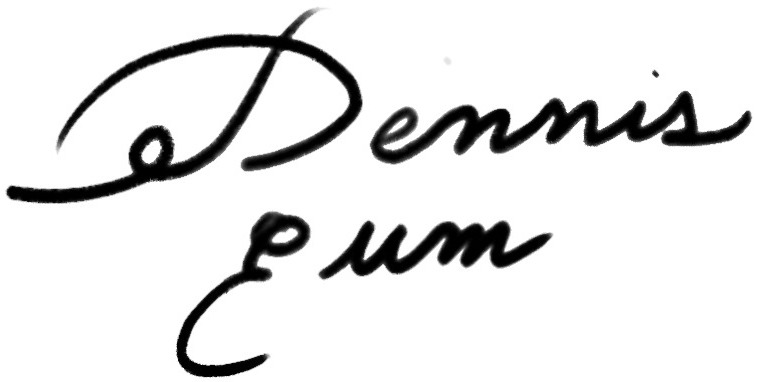 Dennis
Eum